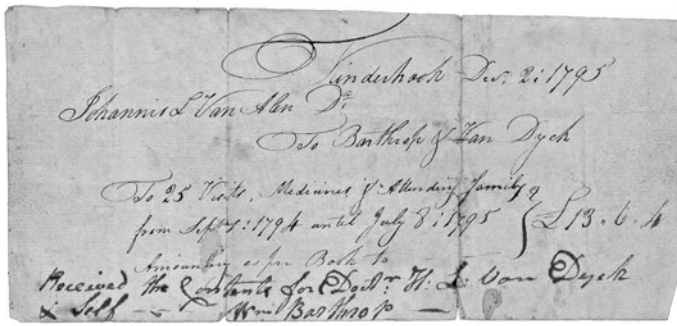 Kinderhook Decr. 2: 1795
Johannis L Van Alen Dr.
To Barthrop & Van Dyck
To 25 Visits, Medicines, & Attending family
from Sept. : 1794 until July 8: 1795 } £13.. 6.. 4
Amounting as per Book to
Received the Contents for Doctr. H: L: Van Dyck
& Self — Wm Barthrop —